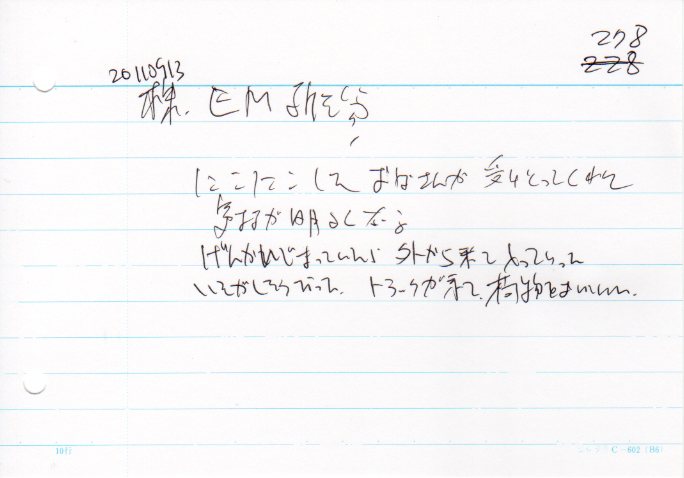 278
228
20110913
株. EM研究
にこにこして おばさんが 受けとってくれて
気持が明るくなる
げんかんしまっていたら 外から来て とっていった
いそがしそうだった. トラックが来て, 荷物を
10行
C-602 (B6)